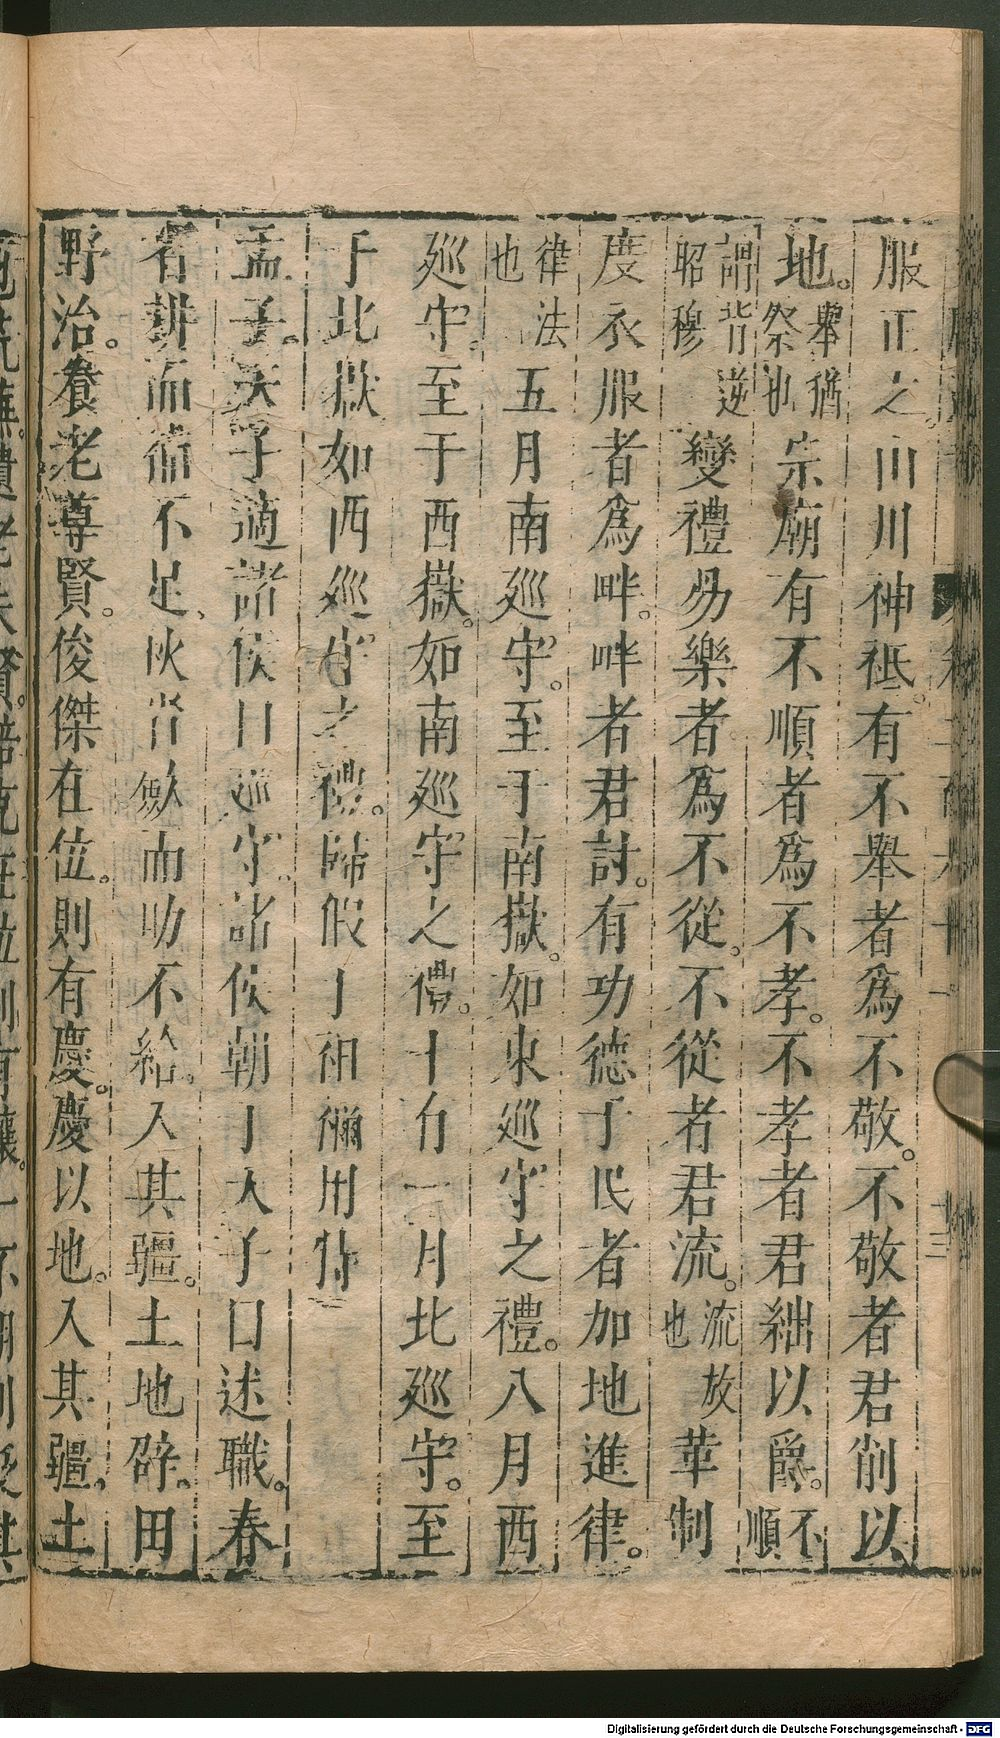 服正之山川神祇。有不舉者爲不敬。不敬者君削以
地。舉猶祭也宗廟有不順者爲不孝。不孝者君絀以爵。不順
謂背逆昭穆變禮易樂者爲不從。不從者君流。流放也革制
度衣服者爲畔。畔者君討。有功德于民者加地進律。
律法也五月南巡守。至于南嶽。如東巡守之禮。八月西
巡守。至于西嶽。如南巡守之禮。十有一月北巡守。至
于北嶽如西巡守之禮。歸假于祖禰用特
孟子。天子適諸侯曰巡守。諸侯朝于天子曰述職。春
省耕而補不足、秋省斂而助不給。入其疆。土地辟。田
野治。養老尊賢。俊傑在位。則有慶。慶以地。入其疆。土
Digitalisierung gefördert durch die Deutsche Forschungsgemeinschaft - DFG